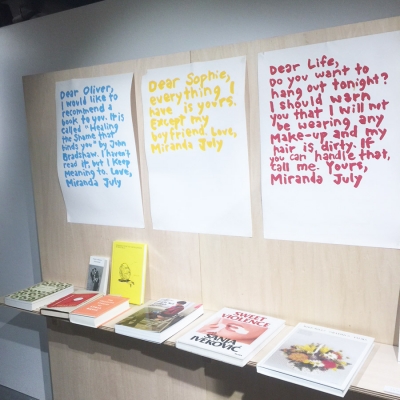 Dear Oliver,
I would like to
recommend a
book to you. It is
called "Healing
the Shame that
binds you" by John
Bradshaw. I haven't
read it, but I keep
Meaning to. Love,
Miranda July
Dear Sophie,
everything I
have is yours.
Except my
boyfriend. Love,
Miranda July
Dear Life,
Do you want to
hang out tonight?
I should warn
you that I will not
be wearing any
Make-up and my
hair is dirty. If
you can handle that,
call me. Yours,
Miranda July
SWEET
VIOLENCE
SANJA
IVEKOVIĆ